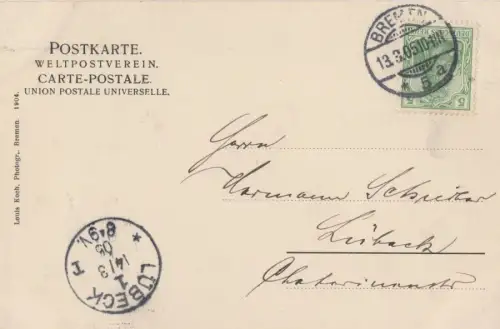 POSTKARTE.
WELTPOSTVEREIN.
CARTE-POSTALE.
UNION POSTALE UNIVERSELLE.
BREMEN
13.3.05
5 a
5 5
Louis Koch, Photogr., Bremen. 1904.
Herrn
Hermann
Lübeck
LÜBECK
1
14/3
05
8-9V.